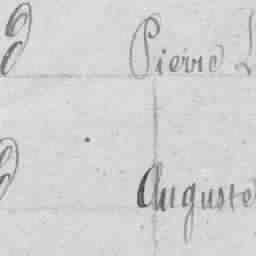 Pierre
Auguste